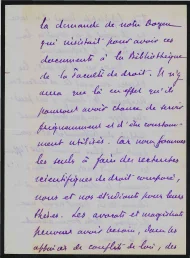 la demande de notre Doyen
qui insistait pour avoir ces
documents à la Bibliothèque
de la Faculté de droit. Il n'y
aura que là en effet qu'ils
pourront avoir chance de servir
 et d'être constam-
ment utilisés. Car nous sommes
les seuls à faire des recherches
scientifiques de droit comparé,
nous et nos étudiants pour leurs
thèses. Les avocats et magistrats
peuvent avoir besoin, dans les
affaires de conflits de lois, des